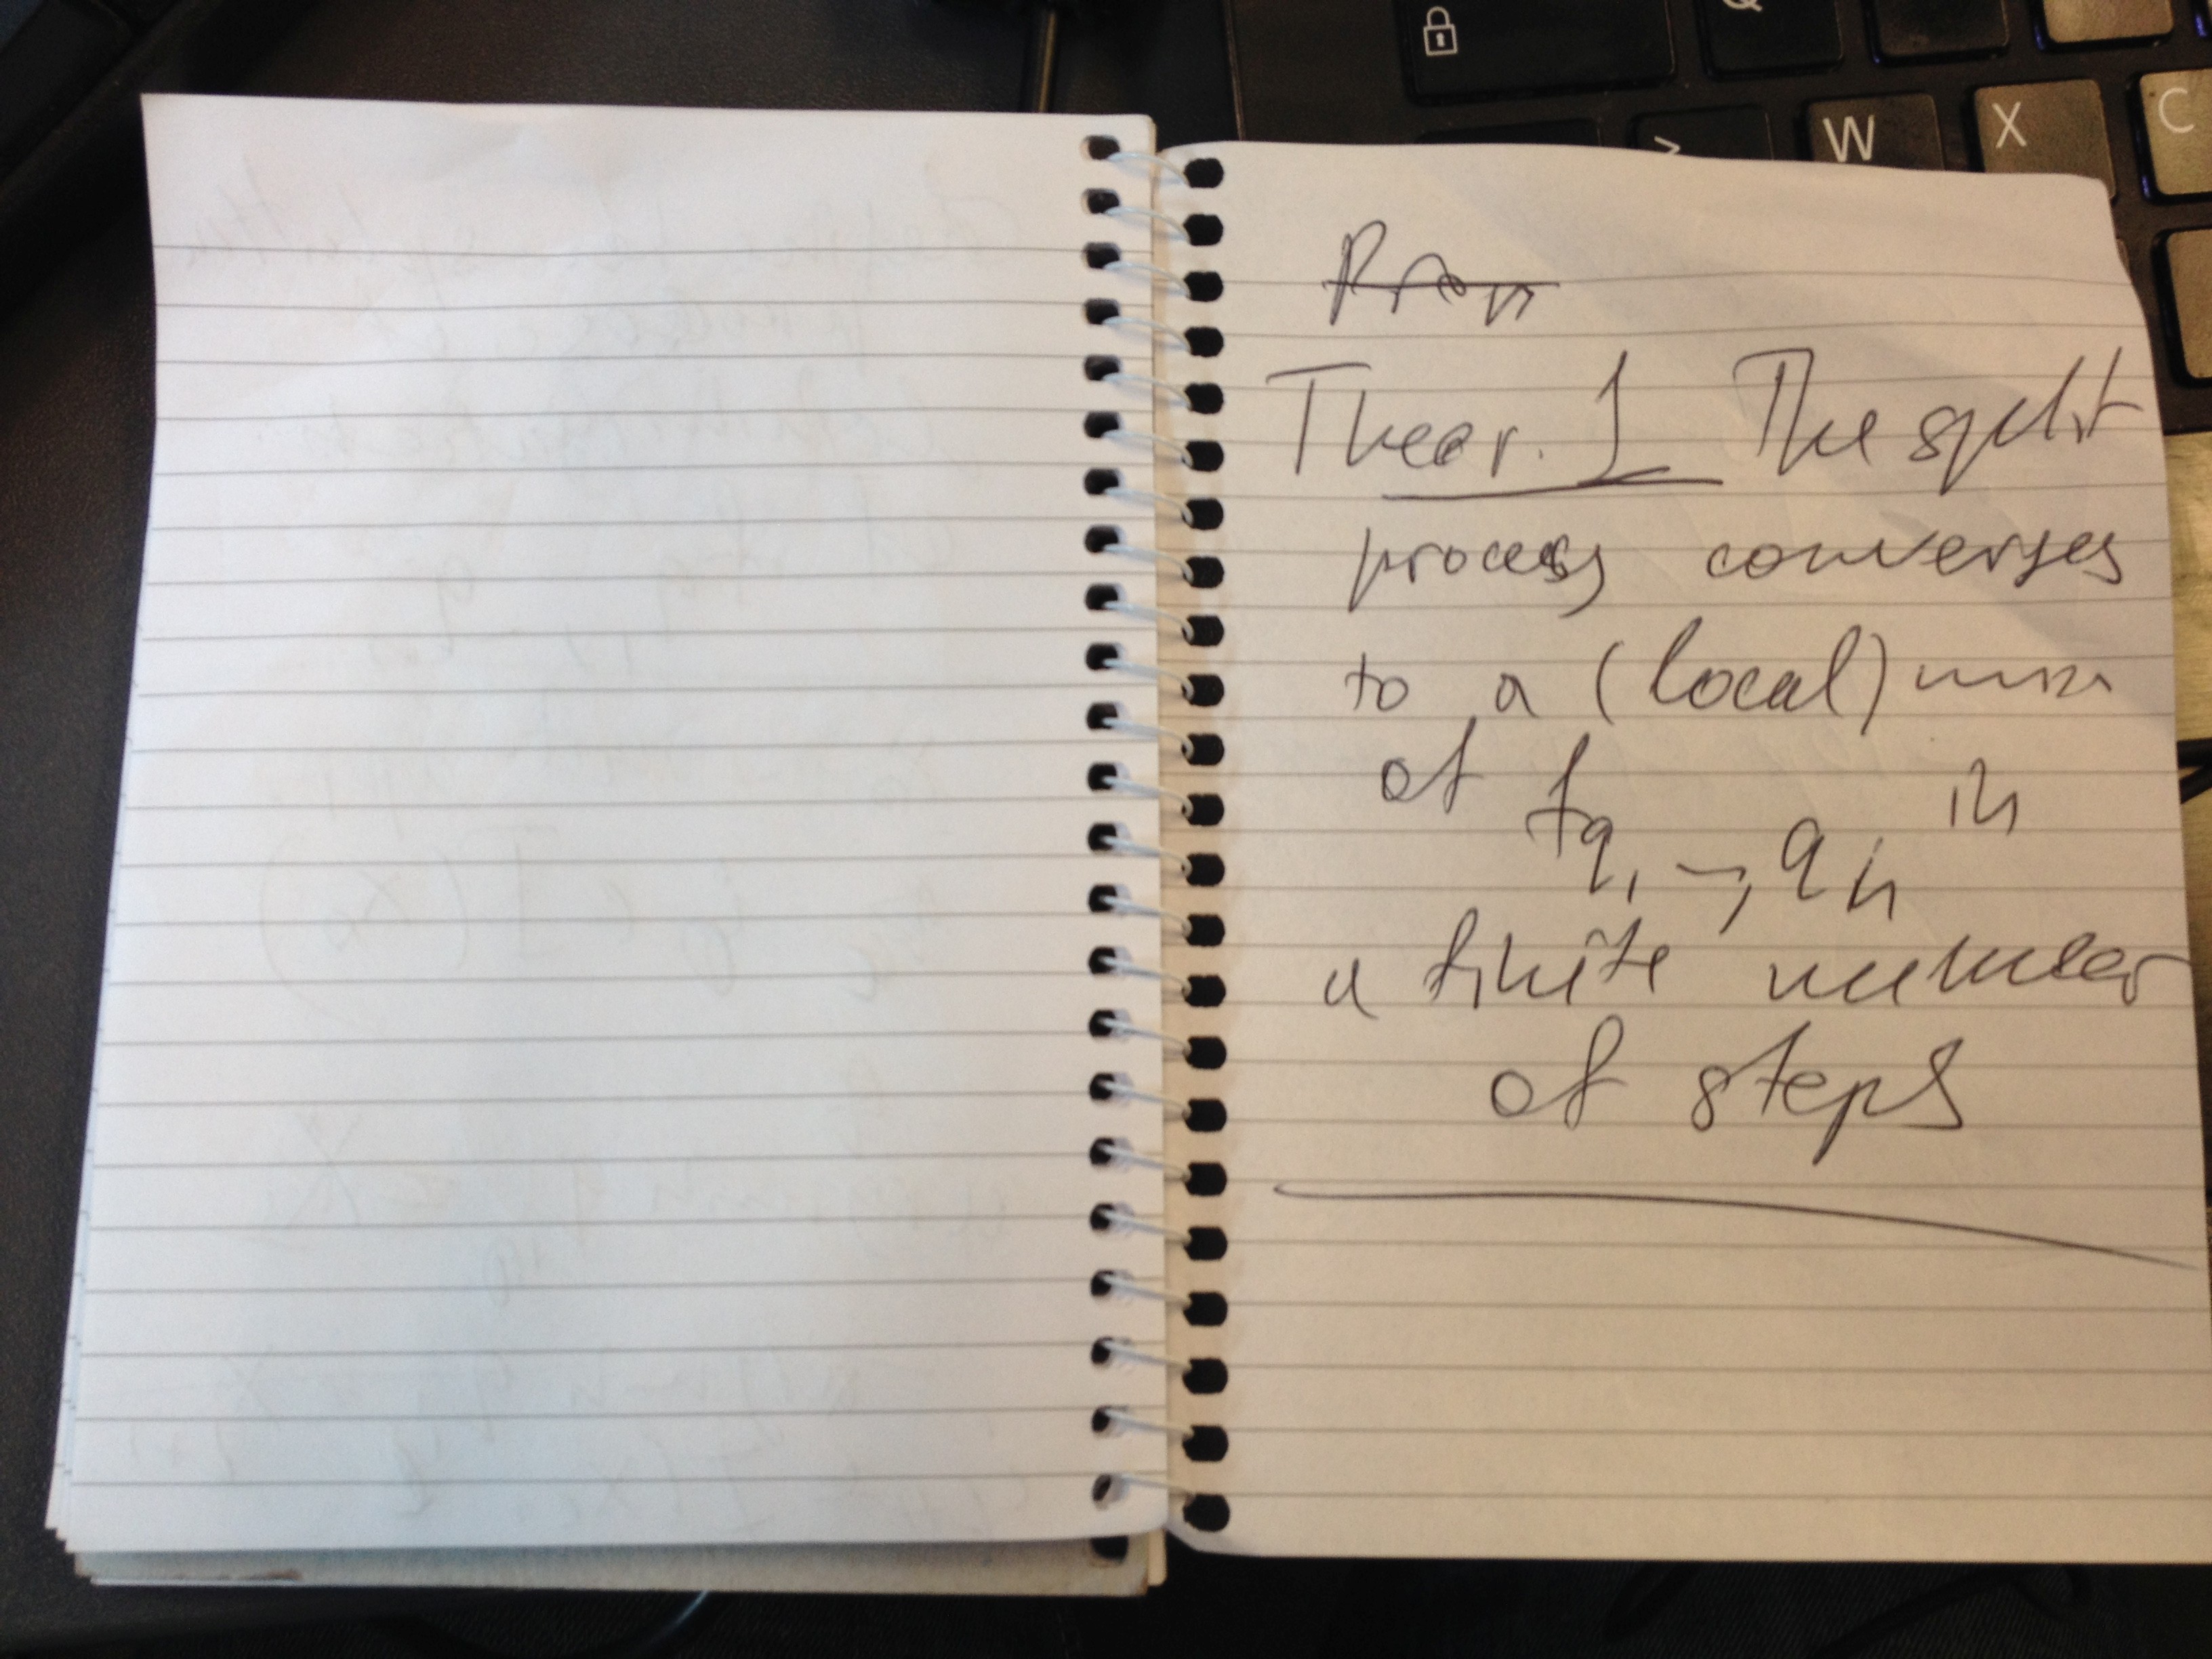 Q
W X C
Theor. 1 The split
process converges
to a (local) min
of f q1, –, qn in
a finite number
of steps